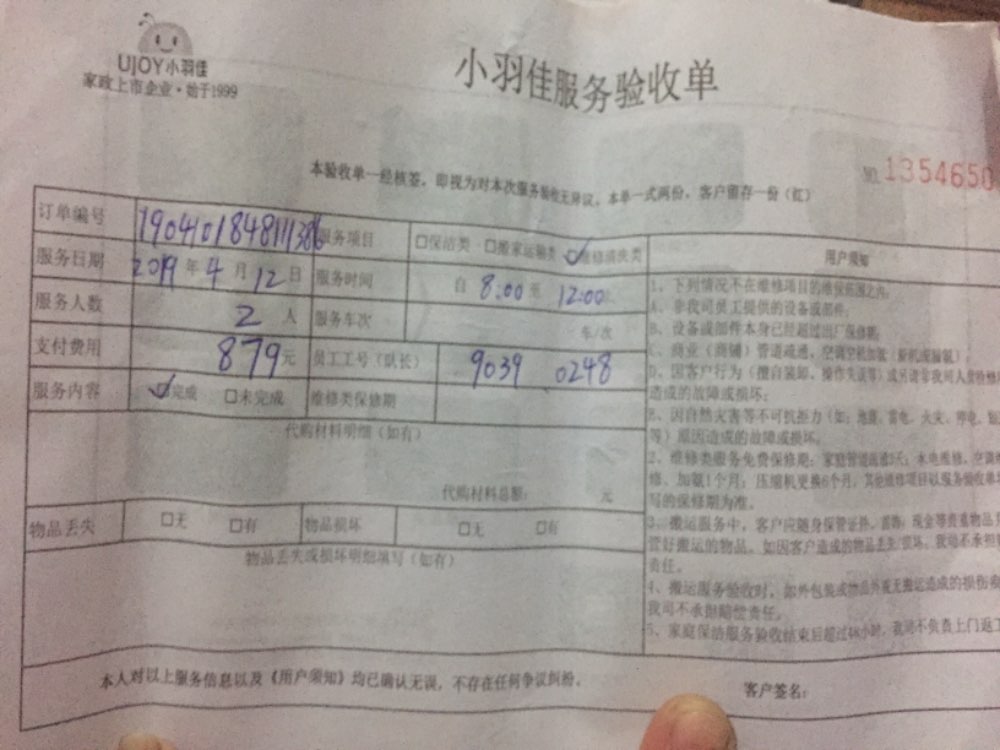 UJOY小羽佳
家政上市企业·始于1999
小羽佳服务验收单
本验收单一经核签，即视为对本次服务验收无异议，本单一式两份，客户留存一份（红）
NO. 1354650
订单编号 190410184811386 服务项目 □保洁类 □搬家运输类 ☑维修清洗类
服务日期 2019年4月12日 服务时间 自 8:00 至 12:00
服务人数 2 人 服务车次 车/次
支付费用 879元 员工工号（队长） 9039 0248
服务内容 ☑完成 □未完成 维修类保修期
代购材料明细（如有）
代购材料总额： 元
物品丢失 □无 □有 物品损坏 □无 □有
物品丢失或损坏明细填写（如有）
用户须知
1、下列情况不在维修项目的维保范围之内：
A、非我司员工提供的设备或部件；
B、设备或部件本身已经超过出厂保修期；
C、商业（商铺）管道疏通，空调空机加氨（新机或漏氨）；
D、因客户行为（擅自装卸、操作失误等）或另请非我司人员检修
造成的故障或损坏；
E、因自然灾害等不可抗拒力（如：地震、雷电、火灾、停电、
等）原因造成的故障或损坏。
2、维修类服务免费保修期：家庭管道疏通7天；水电维修、空调维
修、加氨1个月；压缩机更换6个月，其他维修项目以服务验收单
写的保修期为准。
3、搬运服务中，客户应随身保管证件、首饰、现金等贵重物品
管好搬运的物品。如因客户造成的物品丢失/损坏，我司不承担
责任。
4、搬运服务验收时，如外包装或物品外观无搬运造成的损伤
我司不承担赔偿责任。
5、家庭保洁服务验收结束后超过48小时，我司不负责上门返工
本人对以上服务信息以及《用户须知》均已确认无误，不存在任何争议纠纷。
客户签名：